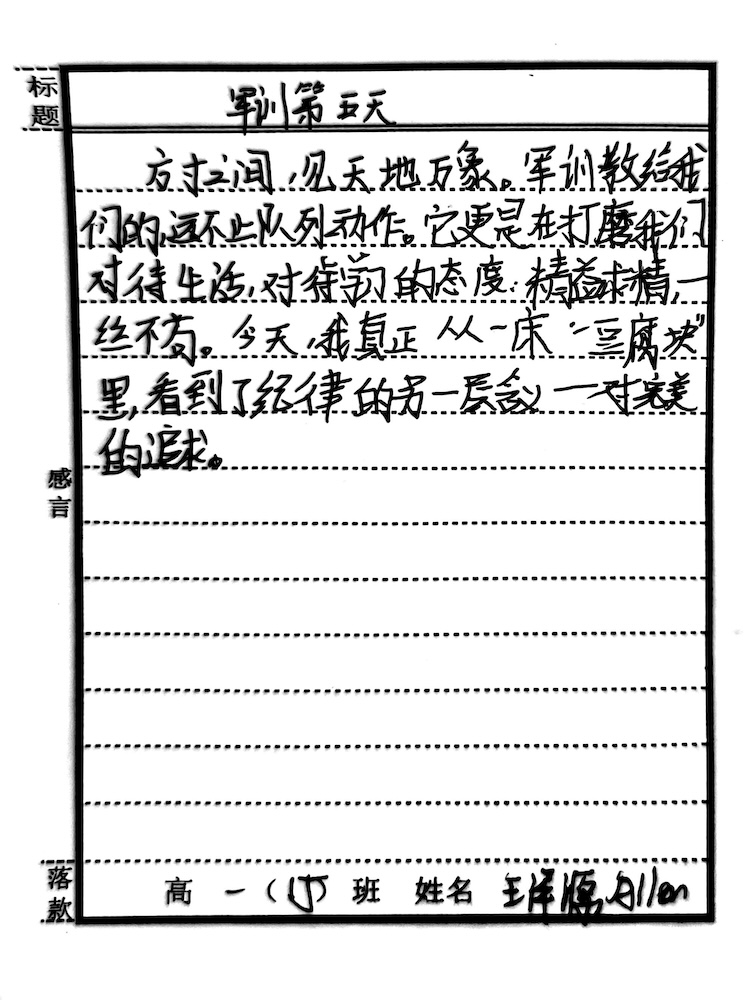 标题
军训第五天
方寸之间，见天地万象。军训教给我
们的，远不止队列动作。它更是在打磨我们
对待生活，对待学习的态度：精益求精，一
丝不苟。今天，我真正从一床“豆腐块”
里，看到了纪律的另一层含义——对完美
的追求。
感言
落款
高一（15）班 姓名 王泽源 Allen